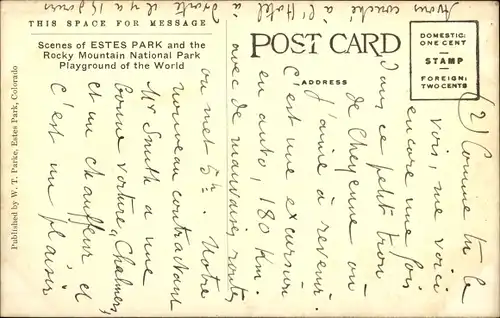 THIS SPACE FOR MESSAGE
Scenes of ESTES PARK and the
Rocky Mountain National Park
Playground of the World
Published by W. T. Parke, Estes Park, Colorado
POST CARD
ADDRESS
DOMESTIC:
ONE CENT
STAMP
FOREIGN:
TWO CENTS
(2) Comme tu le
vois, me voici
encore une fois
dans ce petit trou
de Cheyenne où
j'aime à revenir.
C'est une excursion
en auto, 180 Km.
avec de mauvaises routes
on met 5h. Notre
nouveau contractant
Mr Smith a une
bonne voiture, Chalmers,
et un chauffeur, et
c'est un plaisir
Avons couché à l'Hotel à
il y a 15 jours